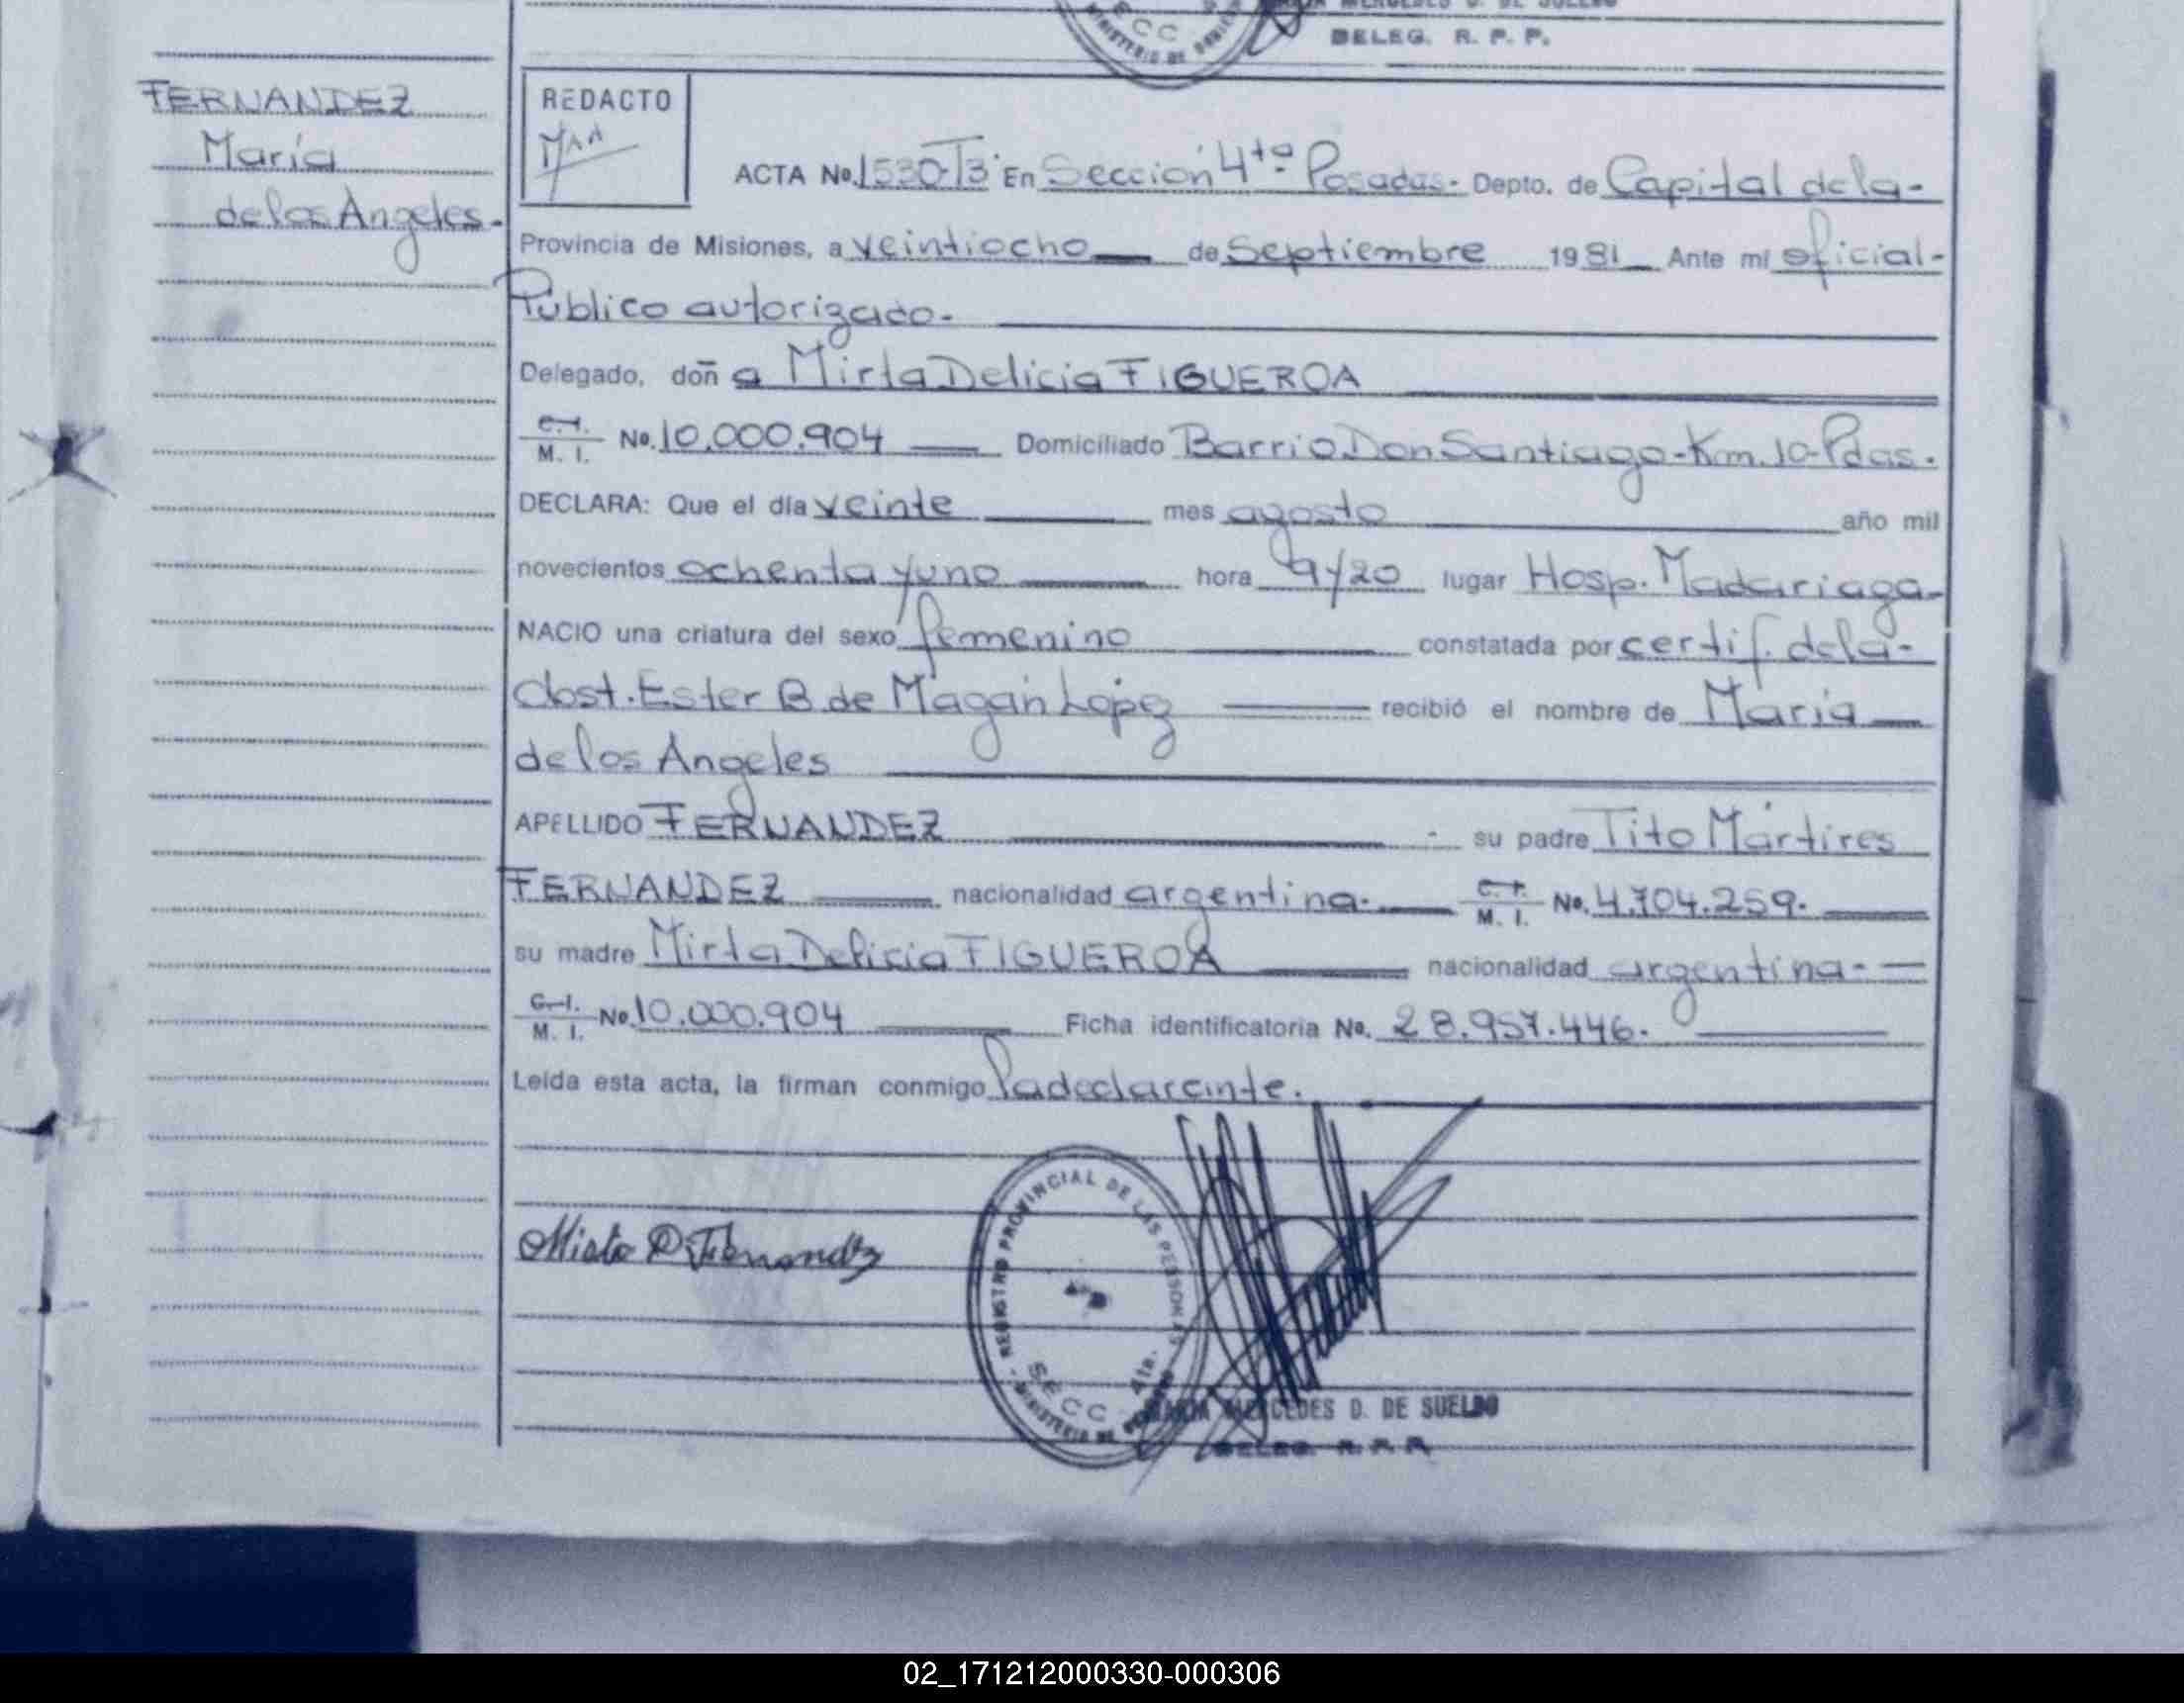 DELEG. R. P. P.
FERNANDEZ
María
de los Angeles.-
REDACTO
ACTA No. 1530-T3- En Sección 4ta- Posadas.- Depto. de Capital de la-
Provincia de Misiones, a veintiocho de Septiembre 1981 Ante mi oficial-
Público autorizado.-
Delegado, doña Mirta Delicia FIGUEROA
C.I.
M. I. No. 10.000.904 Domiciliado Barrio Don Santiago-Km.10-Pdas.
DECLARA: Que el día veinte mes agosto año mil
novecientos ochenta y uno hora 9/20 lugar Hosp. Madariaga-
NACIO una criatura del sexo femenino constatada por certif. de la-
Obst. Ester B. de Magán López recibió el nombre de María
de los Angeles
APELLIDO FERNANDEZ su padre Tito Mártires
FERNANDEZ nacionalidad argentina.- C. I.
M. I. No. 4.704.259.
su madre Mirta Delicia FIGUEROA nacionalidad argentina.-
C.I.
M. I. No. 10.000.904 Ficha identificatoria No. 28.957.446.
Leída esta acta, la firman conmigo la declarante.
Mirta D. Fernandez
REGISTRO PROVINCIAL DE LAS PERSONAS
SECC. 4ta.
MINISTERIO DE
MARIA MERCEDES D. DE SUELDO
DELEG. R. P. P.
02_171212000330-000306